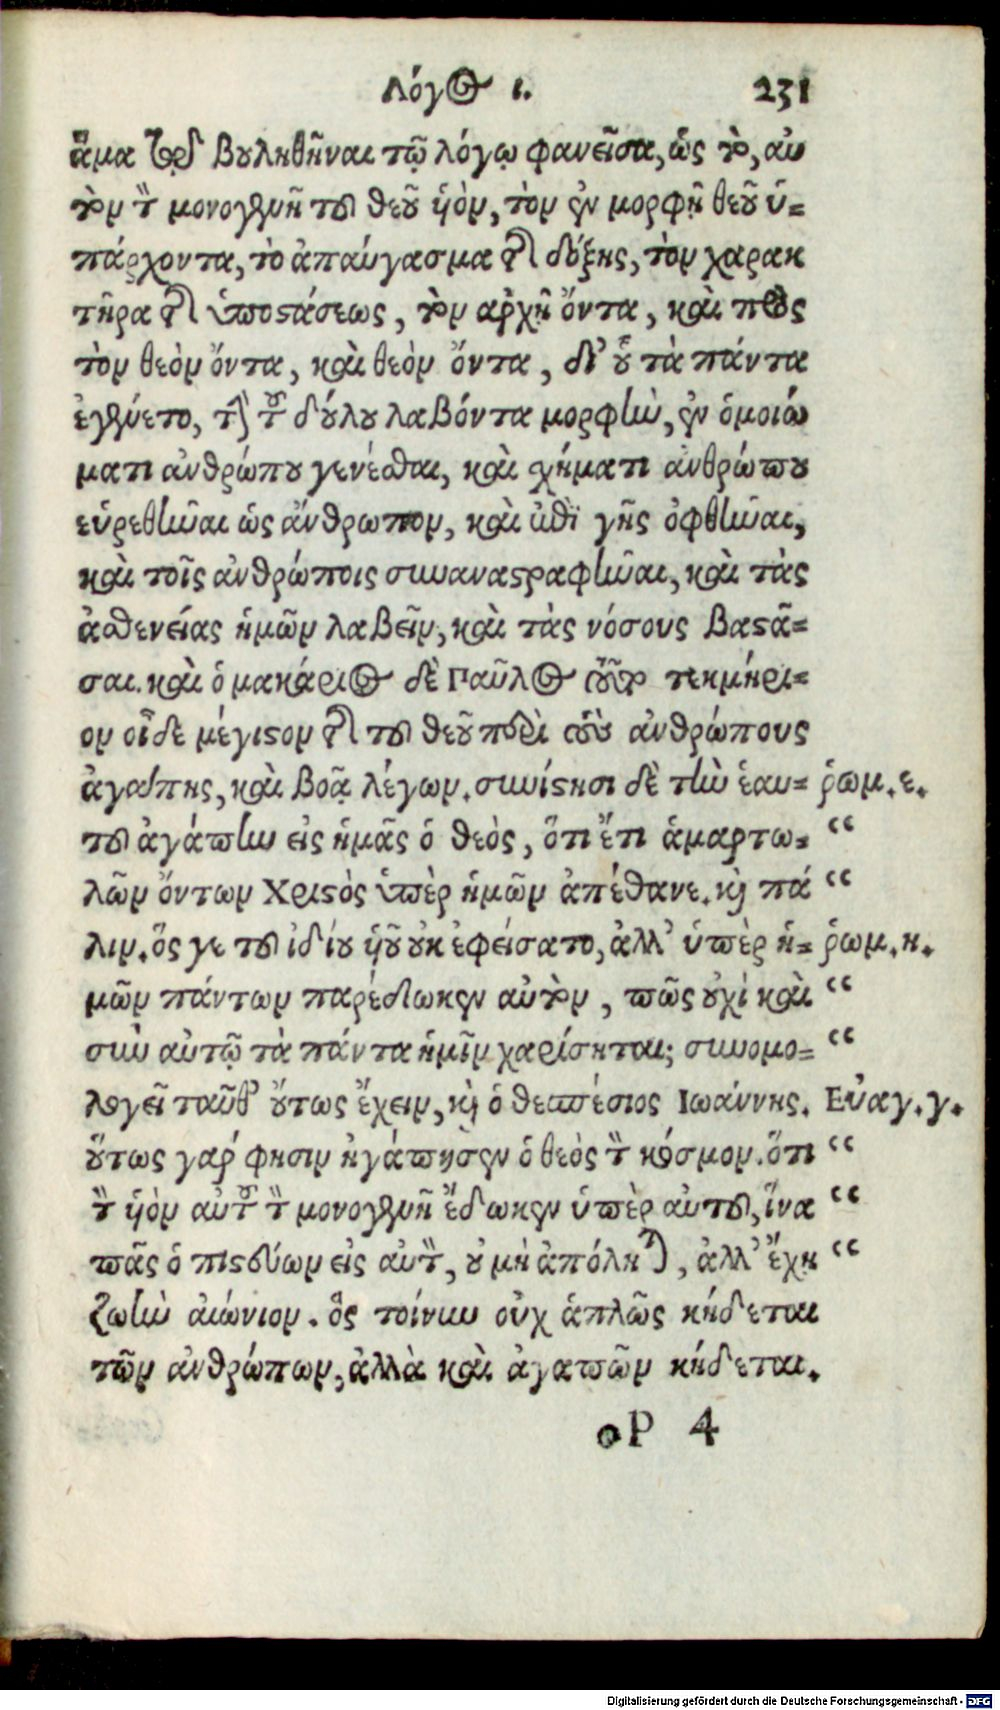 Λόγος ι. 231
ἅμα τῷ βουληθῆναι τῷ λόγῳ φανεῖσα, ὡς τὸ, αὐ
τὸν τὸν μονογενῆ τοῦ θεοῦ υἱὸν, τὸν ἐν μορφῇ θεοῦ ὑ-
πάρχοντα, τὸ ἀπαύγασμα τῆς δόξης, τὸν χαρακ
τῆρα τῆς ὑποστάσεως, τὸν ἐν ἀρχῇ ὄντα, καὶ πρὸς
τὸν θεὸν ὄντα, καὶ θεὸν ὄντα, δι' οὗ τὰ πάντα
ἐγένετο, τὴν τοῦ δούλου λαβόντα μορφὴν, ἐν ὁμοιώ
ματι ἀνθρώπου γενέσθαι, καὶ σχήματι ἀνθρώπου
εὑρεθῆναι ὡς ἄνθρωπον, καὶ ἐπὶ γῆς ὀφθῆναι,
καὶ τοῖς ἀνθρώποις συναναστραφῆναι, καὶ τὰς
ἀσθενείας ἡμῶν λαβεῖν, καὶ τὰς νόσους βαστᾶ-
σαι. καὶ ὁ μακάριος δὲ Παῦλος τοῦτο τεκμήρι-
ον οἶδε μέγιστον τῆς τοῦ θεοῦ περὶ τοὺς ἀνθρώπους
ἀγάπης, καὶ βοᾷ λέγων. συνίστησι δὲ τὴν ἑαυ- ῥωμ. ε.
τοῦ ἀγάπην εἰς ἡμᾶς ὁ θεὸς, ὅτι ἔτι ἁμαρτω- “
λῶν ὄντων Χριστὸς ὑπὲρ ἡμῶν ἀπέθανε. καὶ πά “
λιν. ὅς γε τοῦ ἰδίου υἱοῦ οὐκ ἐφείσατο, ἀλλ' ὑπὲρ ἡ- ῥωμ. η.
μῶν πάντων παρέδωκεν αὐτὸν, πῶς οὐχὶ καὶ “
σὺν αὐτῷ τὰ πάντα ἡμῖν χαρίσηται; συνομο- “
λογεῖ ταῦθ' οὕτως ἔχειν, καὶ ὁ θεσπέσιος Ιωάννης. Εὐαγ. γ.
οὕτως γάρ φησιν ἠγάπησεν ὁ θεὸς τὸν κόσμον. ὅτι “
τὸν υἱὸν αὐτοῦ τὸν μονογενῆ ἔδωκεν ὑπὲρ αὐτοῦ, ἵνα “
πᾶς ὁ πιστεύων εἰς αὐτὸν, οὐ μὴ ἀπόληται, ἀλλ' ἔχῃ “
ζωὴν αἰώνιον. ὃς τοίνυν οὐχ ἁπλῶς κήδεται
τῶν ἀνθρώπων, ἀλλὰ καὶ ἀγαπῶν κήδεται.
P 4
Digitalisierung gefördert durch die Deutsche Forschungsgemeinschaft - DFG